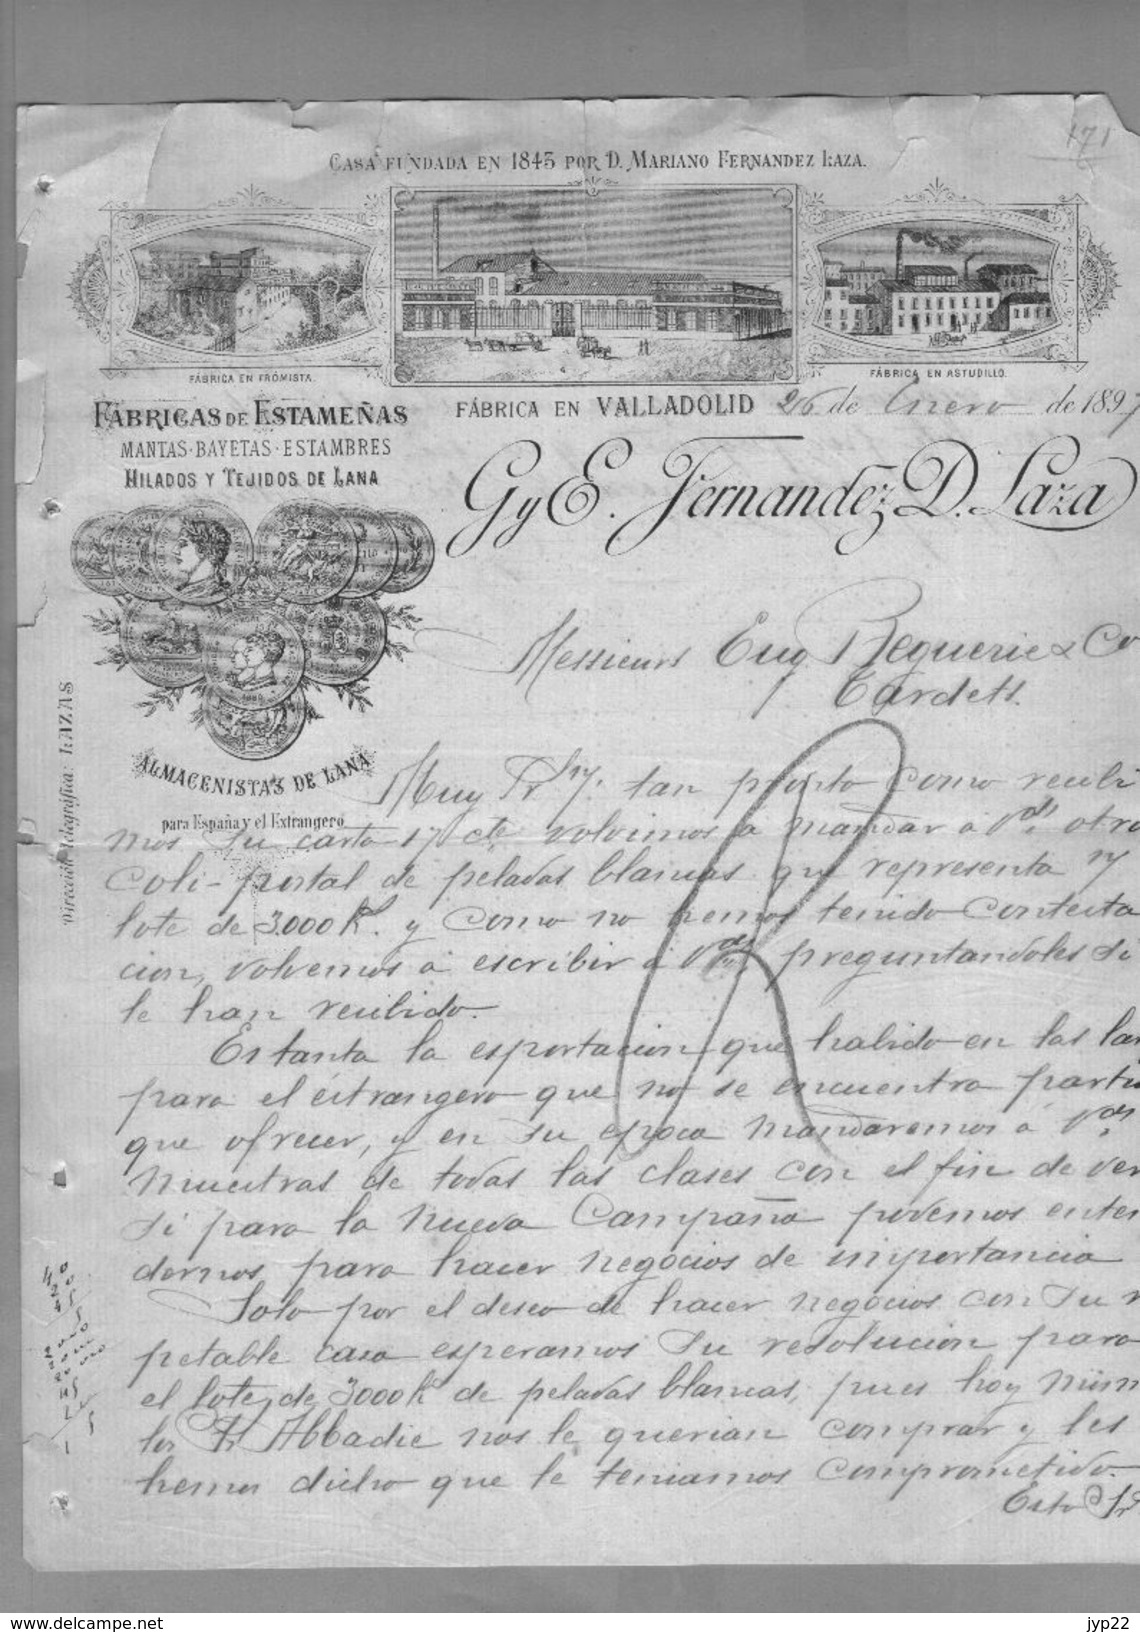 171
CASA FUNDADA EN 1845 POR D. MARIANO FERNANDEZ LAZA.
FÁBRICA EN FRÓMISTA.
FÁBRICA EN ASTUDILLO.
FÁBRICAS DE ESTAMEÑAS
MANTAS-BAYETAS-ESTAMBRES
HILADOS Y TEJIDOS DE LANA
FÁBRICA EN VALLADOLID 26 de Enero de 1897
G y E. Fernandez D. Laza
ALMACENISTAS DE LANA
para España y el Extrangero
Dirección telegráfica: LAZAS
Messieurs Eug Beguerie & Co
Tardets.
Muy Sres ntr. tan pronto como recibi
mos su carta 17 cte volvimos a mandar á Vds. otro
coli-postal de peladas blancas que representa
lote de 3.000 Ks. y como no hemos tenido contesta
cion, volvemos á escribir á Vds. preguntandoles si
le han recibido.
Es tanta la esportacion que habido en las lan
para el estrangero que no se encuentra partid
que ofrecer, y en su epoca mandaremos á Vds.
muestras de todas las clases con el fin de ver
si para la nueva Campaña podemos enten
dernos para hacer negocios de importancia
Solo por el deseo de hacer negocios con su r
petable casa esperamos su resolucion para
el lote de 3000 Ks de peladas blancas, pues hoy mism
los Sr Abbadie nos le querian comprar y les
hemos dicho que le teniamos comprometido.
Esto Sr
jyp22